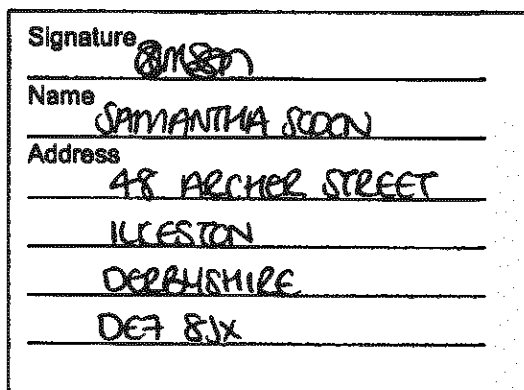 Signature
Name SAMANTHA SCOON
Address
48 ARCHER STREET
ILKESTON
DERBYSHIRE
DE7 8JX